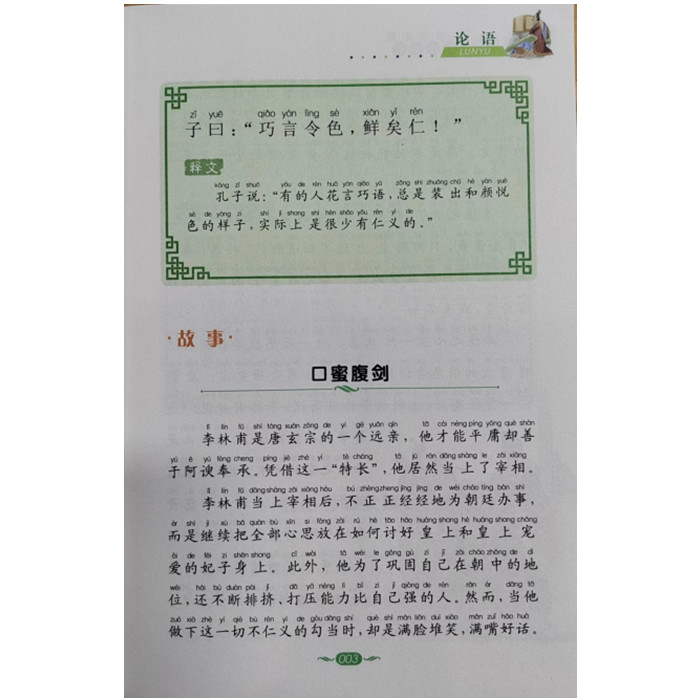 论语
LUNYU
zǐ yuē qiǎo yán lìng sè xiǎn yǐ rén
子曰：“巧言令色，鲜矣仁！”
释文
kǒng zǐ shuō yǒu de rén huā yán qiǎo yǔ zǒng shì zhuāng chū hé yán yuè
孔子说：“有的人花言巧语，总是装出和颜悦
sè de yàng zi shí jì shang shì hěn shǎo yǒu rén yì de
色的样子，实际上是很少有仁义的。”
·故事·
口蜜腹剑
lǐ lín fǔ shì táng xuán zōng de yí gè yuǎn qīn tā cái néng píng yōng què shàn
李林甫是唐玄宗的一个远亲，他才能平庸却善
yú ē yú fèng cheng píng jiè zhè yī tè cháng tā jū rán dāng shàng le zǎi xiàng
于阿谀奉承。凭借这一“特长”，他居然当上了宰相。
lǐ lín fǔ dāng shàng zǎi xiàng hòu bú zhèng zheng jīng jīng de wèi cháo tíng bàn shì
李林甫当上宰相后，不正正经经地为朝廷办事，
ér shì jì xù bǎ quán bù xīn si fàng zài rú hé tǎo hǎo huáng shang hé huáng shang chǒng
而是继续把全部心思放在如何讨好皇上和皇上宠
ài de fēi zi shēn shang cǐ wài tā wèi le gǒng gù zì jǐ zài cháo zhōng de dì
爱的妃子身上。此外，他为了巩固自己在朝中的地
wèi hái bú duàn pái jǐ dǎ yā néng lì bǐ zì jǐ qiáng de rén rán ér dāng tā
位，还不断排挤、打压能力比自己强的人。然而，当他
zuò xià zhè yí qiè bù rén yì de gòu dàng shí què shì mǎn liǎn duī xiào mǎn zuǐ hǎo huà
做下这一切不仁义的勾当时，却是满脸堆笑，满嘴好话。
003